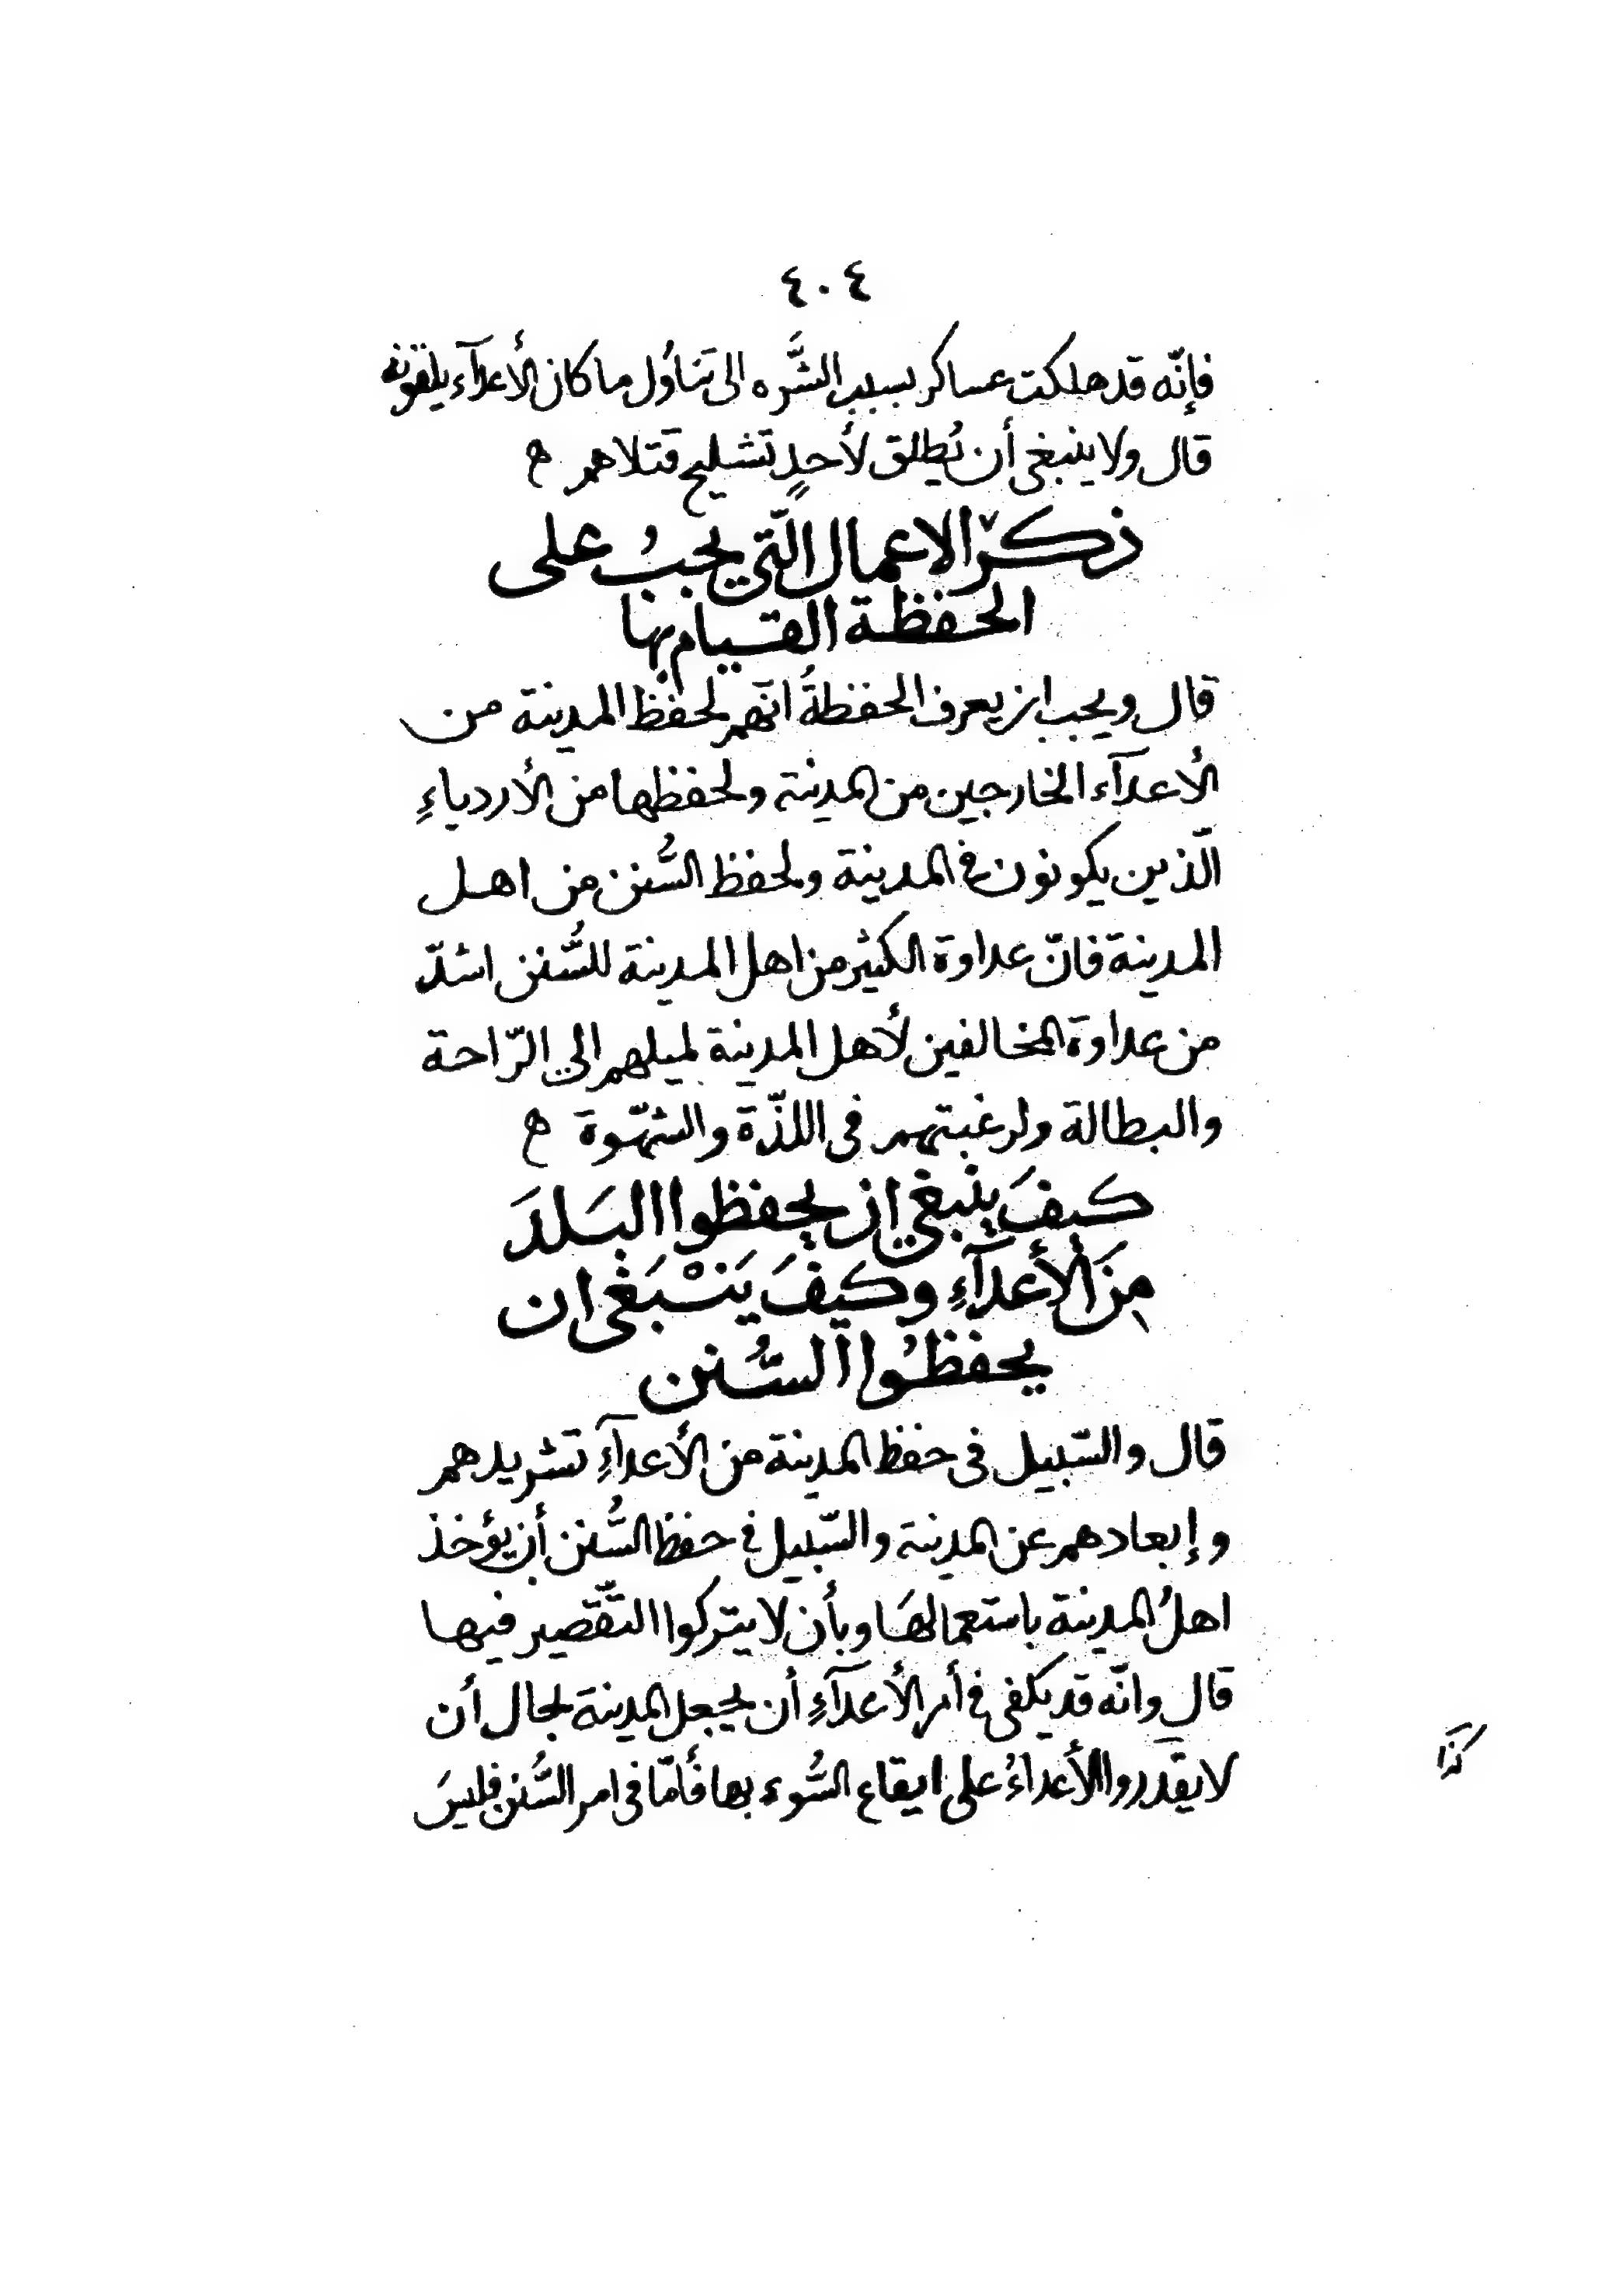 ٤٠٤
فإنّه قد هلكت عساكر بسبب الشَّره الى تناوُل ما كان الأعدآء يلقونه
قال ولا ينبغى أن يُطلق لأحدٍ تشليح قتلاهم ه
ذكر الاعمال الّتى يجبُ على
الحفظة القيام بها
قال ويجب ان يعرف الحفظةُ انّهم لحفظ المدينة من
الأعدآء الخارجين من المدينة ولحفظها من الأردياءِ
الّذين يكونون فى المدينة ولحفظ السُّنن من اهل
المدينة فانّ عداوة الكثير من اهل المدينة للسُّنن اشدّ
من عداوة المخالفين لأهل المدينة لميلهم الى الرّاحة
والبطالة ولرغبتهم فى اللذّة والشهّوة ه
كيفَ ينبغى ان يحفظوا البَلدَ
مِنَ الأعدآءِ وكيفَ يَنْبَغى ان
يحفظُوا السُّنن
قال والسّبيل فى حفظ المدينة من الأعدآءِ تشريدهم
وإبعادهم عن المدينة والسّبيل فى حفظ السُّنن أن يؤخذ
اهلُ المدينة باستعمالهَا وبأن لا يتركوا التّقصير فيها
قال وانّه قد يكفى فى أمر الأعدآءِ أن يجعل المدينة بحال أن
لا يقدروا الأعداءُ على ايقاع السُّوء بها فأمّا فى امر السُّنن فليسَ
كذا